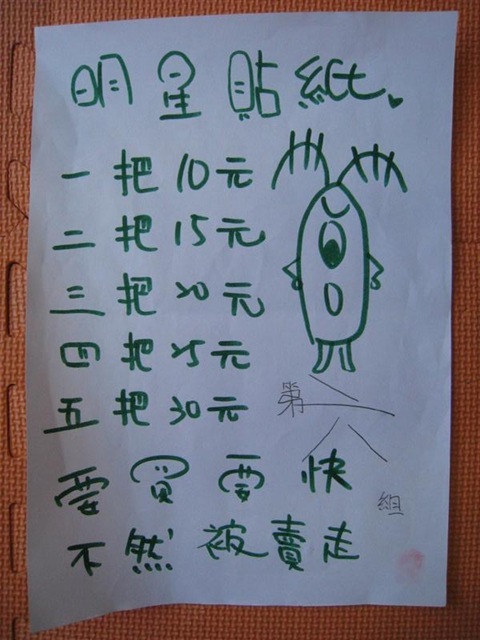 明星貼紙
一把10元
二把15元
三把20元
四把25元
五把30元
要買要快
不然被賣走
第六組